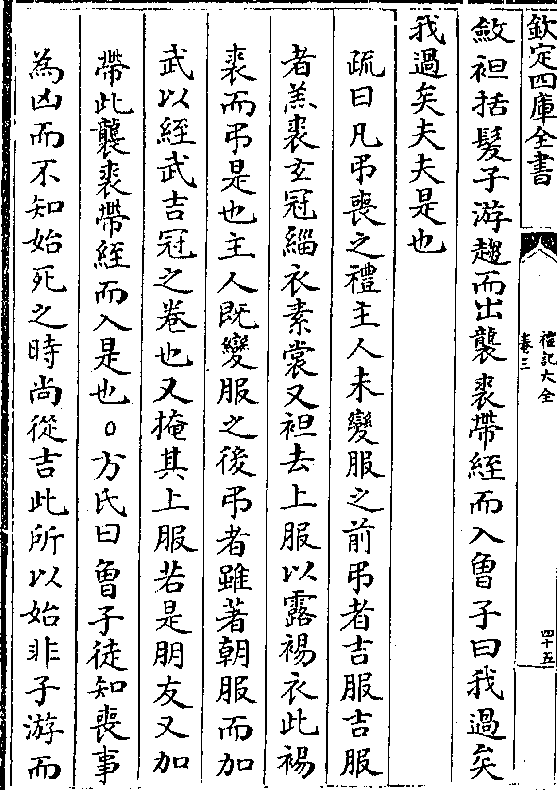 欽定四庫全書
禮記大全
卷三
四十五
斂袒括髮子游趨而出襲裘帶絰而入曾子曰我過矣
我過矣夫夫是也
疏曰凡弔喪之禮主人未變服之前弔者吉服吉服
者羔裘玄冠緇衣素裳又袒去上服以露裼衣此裼
裘而弔是也主人既變服之後弔者雖著朝服而加
武以絰武吉冠之卷也又掩其上服若是朋友又加
帶此襲裘帶絰而入是也○方氏曰曾子徒知喪事
為凶而不知始死之時尚從吉此所以始非子游而